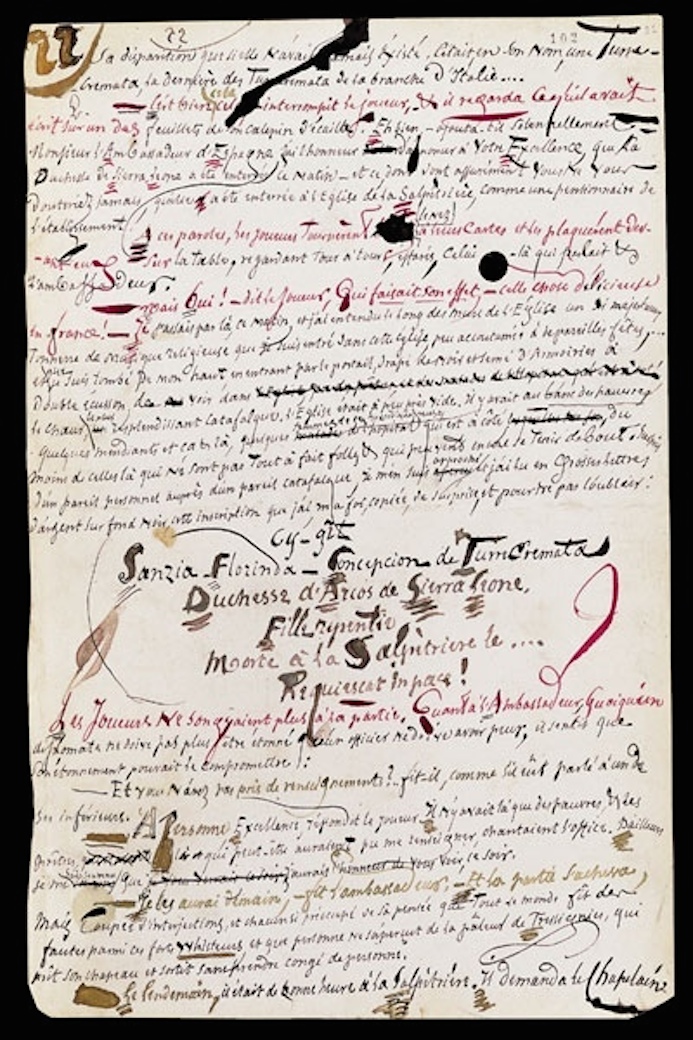 22
22
102
Sa disparition que si elle n'avait jamais existé. C'était, en son Nom, une Turre-
Cremata, la dernière des Turre-Cremata de la branche d'Italie....
— C'est bien cela — interrompit le joueur, & il regarda ce qu'il avait
écrit sur un des feuillets de son calepin d'écailles. Eh bien, — ajouta-t-il solennellement
Monsieur l'Ambassadeur d'Espagne, j'ai l'honneur d'annoncer à Votre Excellence, que la
Duchesse de Sierra-Leone a été enterrée ce Matin — et ce dont assurément Vous ne Vous
Douteriez jamais, qu'elle a été enterrée à l'Eglise de la Salpêtrière, comme une pensionnaire de
l'établissement!
A ces paroles, les joueurs Tournèrent (le nez)
à leurs Cartes et les plaquèrent dev-
-ant eux sur la table, regardant Tous à tour, effarés, Celui-là qui parlait &
l'ambassadeur.
— mais Oui! — dit le joueur, Qui faisait son effet, — cette chose délicieuse
en france! — Je passais par là, ce Matin, et j'ai entendu le long des murs de l'Eglise un si majestueux
Tonnerre de Musique religieuse que je suis entré dans cette église, peu accoutumée à de pareilles fêtes,...
et que suis tombé de mon haut, en entrant par le portail, drapé de Noir et semé d'Armoiries à
Double écusson, de voir dans
le chœur un resplendissant catafalque. l'Eglise était à peu près vide. Il y avait au banc des pauvres
quelques mendiants et ça et là, quelques femmes qui est à côté, du
moins de celles là qui ne sont pas Tout à fait folles & qui peuvent encore se Tenir de bout. Surpris
d'un pareil personnel auprès d'un pareil catafalque je m'en suis approché et j'ai lu en Grosses lettres
d'argent sur fond Noir cette inscription que j'ai, ma foi, copiée de surprise et pour ne pas l'oublier:
Cy-gît
Sanzia-Florinda-Concepcion de Turre Cremata
Duchesse d'Arcos de Sierra Leone,
Fille repentie
Morte à la Salpêtrière le ....
Requiescat In pace!
Les Joueurs Ne songeaient plus à la partie. Quant à l'Ambassadeur, Quoiqu'un
diplomate ne doive pas plus être étonné qu'un officier ne doive avoir peur, il sentit que
son étonnement pouvait le compromettre:
— Et vous N'avez pas pris de renseignements?.. fit-il, comme s'il eût parlé à un de
ses inférieurs.
A Personne Excellence, répondit le joueur. Il n'y avait là que des pauvres. Les
prêtres, qui peut-être auraient pu me renseigner, chantaient l'office. D'ailleurs
je me que j'aurais l'honneur de Vous Voir, ce soir.
— Je les aurai demain, — fit l'ambassadeur. — Et la partie s'acheva,
Mais Coupée d'interjections, et chacun si préoccupé de sa pensée que Tout le monde fit des
fautes parmi ces forts Whisteurs et que personne ne s'aperçut de la pâleur de Tressignies, qui
prit son chapeau et sortit sans prendre congé de personne.
Le lendemain, il était de bonne heure à la Salpêtrière. Il demanda le Chapelain.